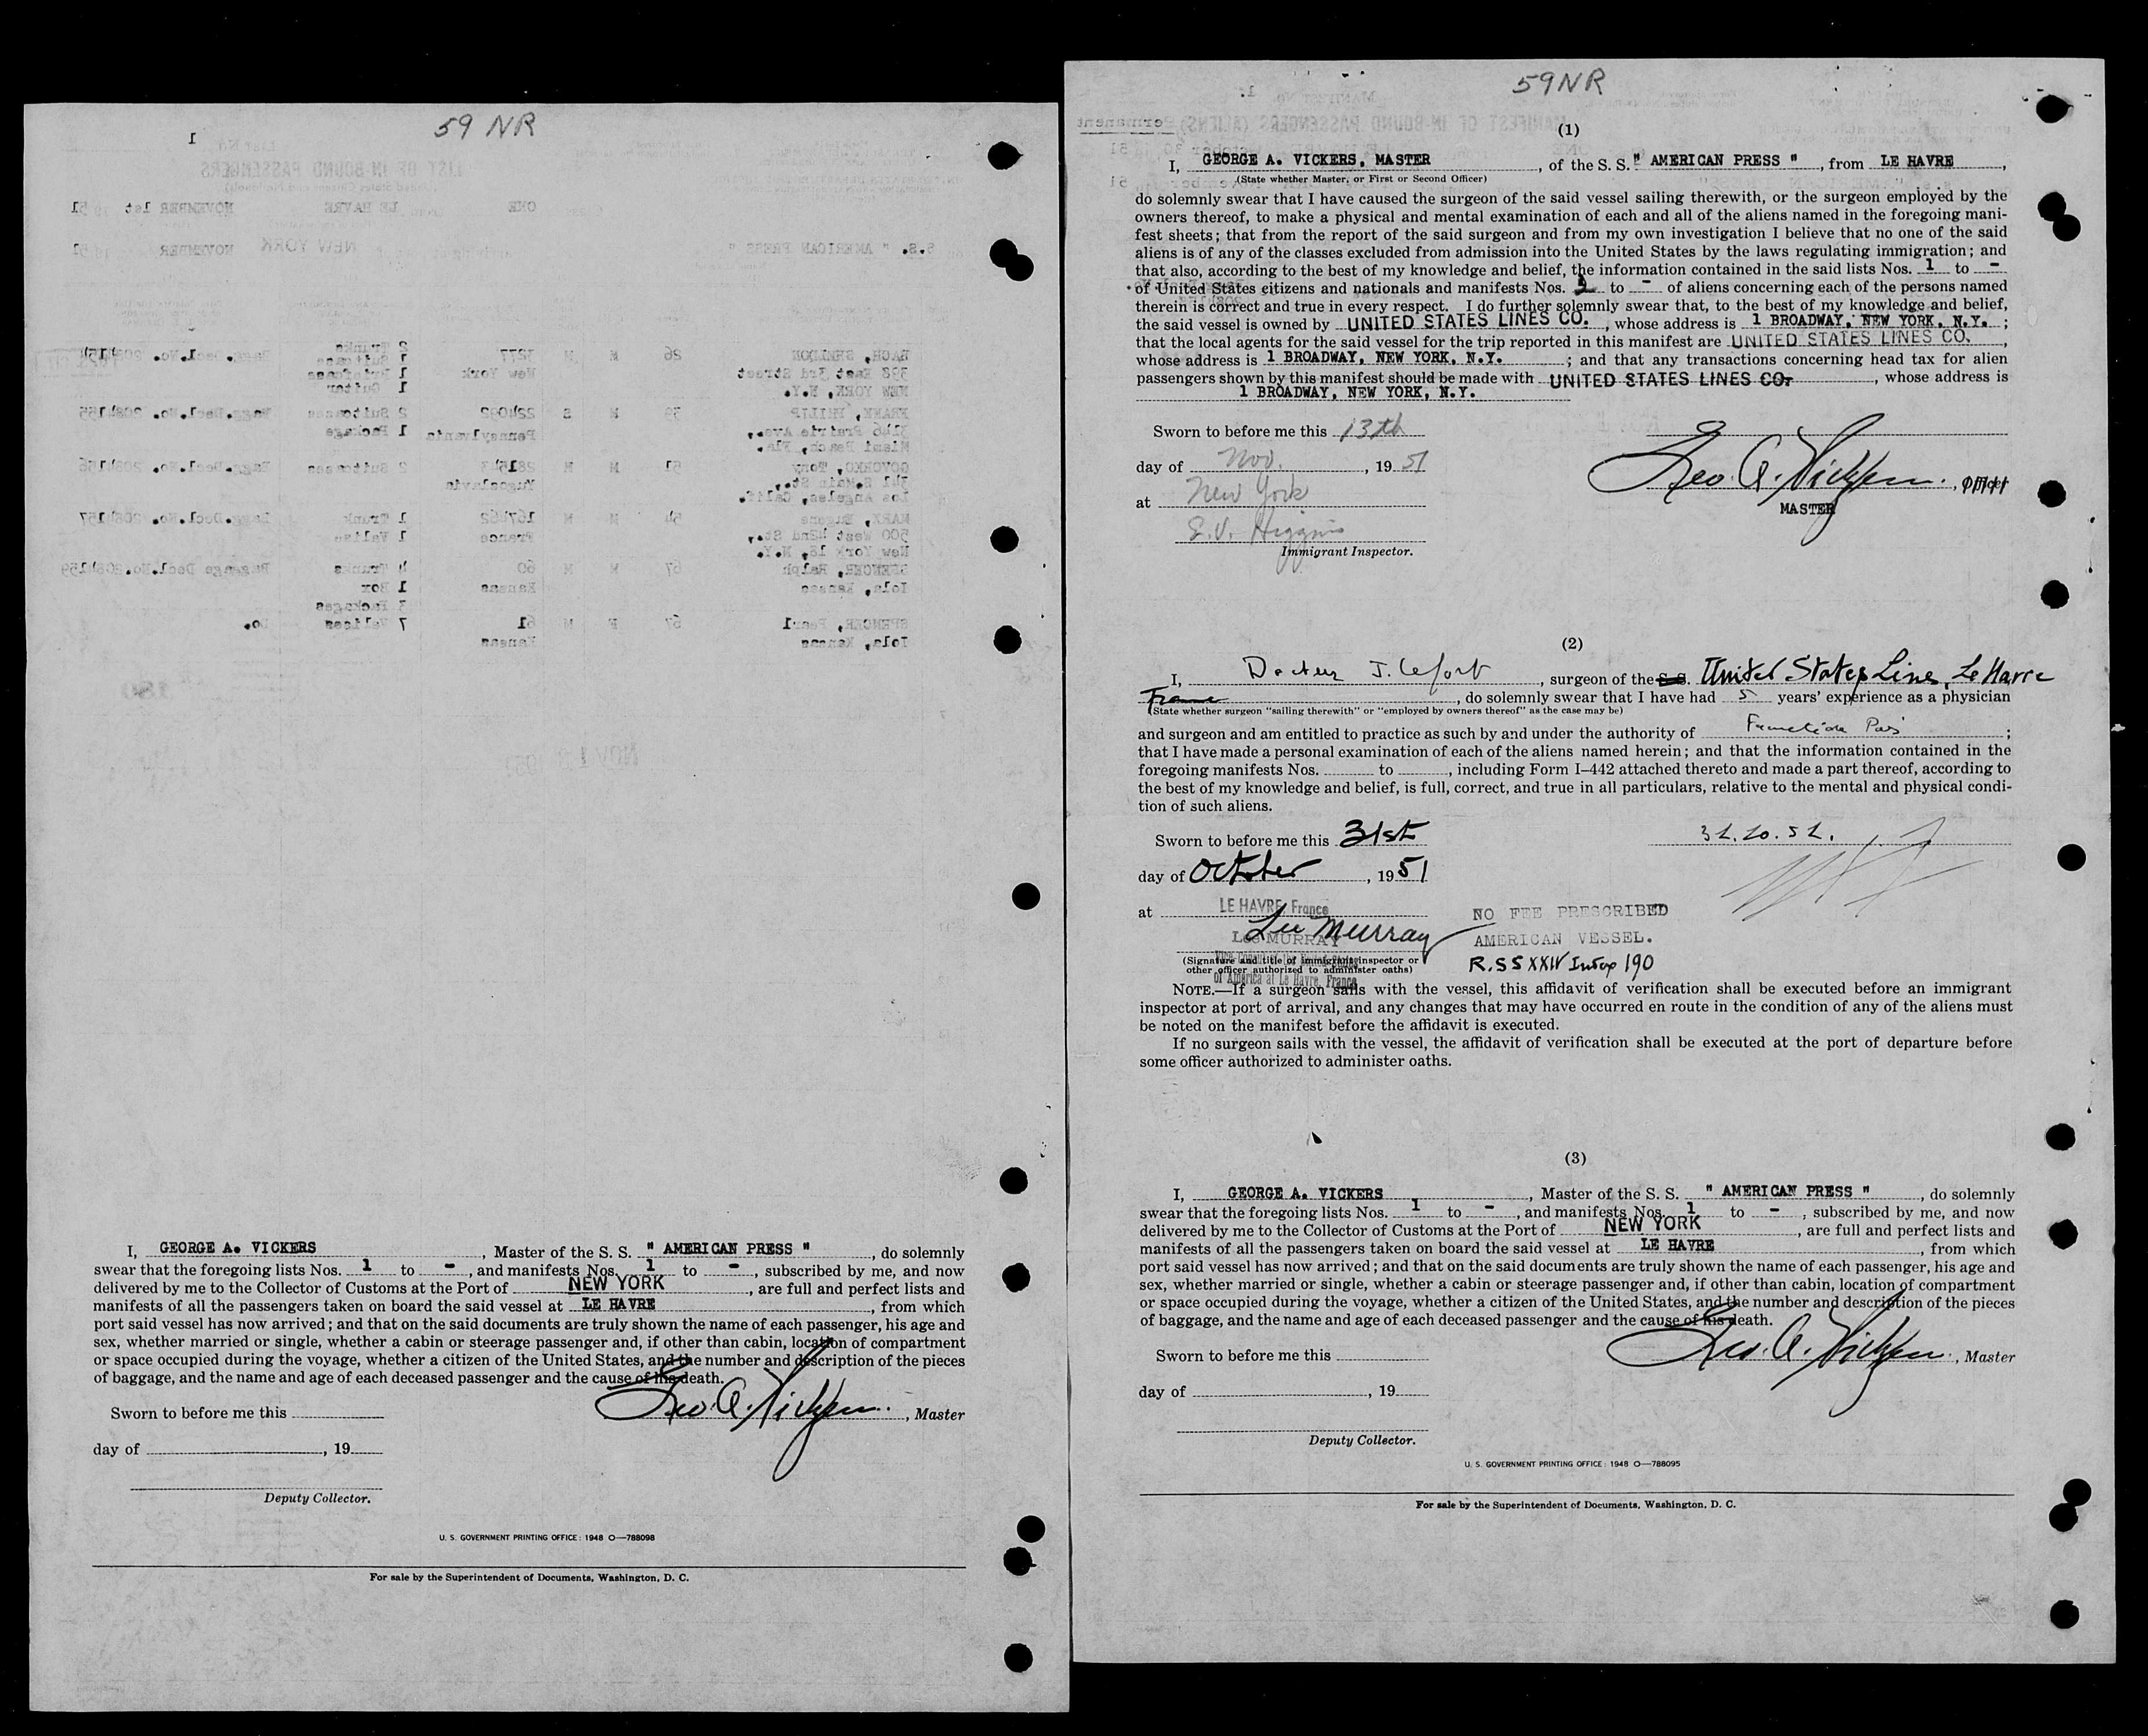 59 NR
1
LIST OF IN-BOUND PASSENGERS
ONE LE HAVRE NOVEMBER 1st 51
S.S. " AMERICAN PRESS " NEW YORK NOVEMBER 51
398 East 3rd Street New York
NEW YORK, N.Y.
FRANK, PHILIP 39 M S 2 Suitcases
3146 Prairie Ave., Pennsylvania 1 Package
Miami Beach, Fla.
GOVORKO, Tony 51 M M 2 Suitcases
341 S.Main St., Yugoslavia
Los Angeles, Calif.
MARX, Eugene 54 M M 167462 1 Trunk
500 West End St., France 1 Valise
New York
SPENCER, Ralph 67 M M 60 4 Trunks
Iola, Kansas Kansas 1 Box
3 Packages
SPENCER, Pearl 67 F M 61 7 Valises Do.
Iola, Kansas Kansas
I, GEORGE A. VICKERS, Master of the S. S. " AMERICAN PRESS ", do solemnly
swear that the foregoing lists Nos. 1 to -, and manifests Nos. 1 to -, subscribed by me, and now
delivered by me to the Collector of Customs at the Port of NEW YORK, are full and perfect lists and
manifests of all the passengers taken on board the said vessel at LE HAVRE, from which
port said vessel has now arrived; and that on the said documents are truly shown the name of each passenger, his age and
sex, whether married or single, whether a cabin or steerage passenger and, if other than cabin, location of compartment
or space occupied during the voyage, whether a citizen of the United States, and the number and description of the pieces
of baggage, and the name and age of each deceased passenger and the cause of his death.
Geo. A. Vickers, Master
Sworn to before me this
day of , 19
Deputy Collector.
U. S. GOVERNMENT PRINTING OFFICE: 1948 O—788098
For sale by the Superintendent of Documents, Washington, D. C.
59NR
MANIFEST OF IN-BOUND PASSENGERS (ALIENS) Permanent
(1)
I, GEORGE A. VICKERS, MASTER, of the S. S. " AMERICAN PRESS ", from LE HAVRE,
(State whether Master, or First or Second Officer)
do solemnly swear that I have caused the surgeon of the said vessel sailing therewith, or the surgeon employed by the
owners thereof, to make a physical and mental examination of each and all of the aliens named in the foregoing mani-
fest sheets; that from the report of the said surgeon and from my own investigation I believe that no one of the said
aliens is of any of the classes excluded from admission into the United States by the laws regulating immigration; and
that also, according to the best of my knowledge and belief, the information contained in the said lists Nos. 1 to -
of United States citizens and nationals and manifests Nos. 1 to - of aliens concerning each of the persons named
therein is correct and true in every respect. I do further solemnly swear that, to the best of my knowledge and belief,
the said vessel is owned by UNITED STATES LINES CO., whose address is 1 BROADWAY, NEW YORK, N.Y. ;
that the local agents for the said vessel for the trip reported in this manifest are UNITED STATES LINES CO.,
whose address is 1 BROADWAY, NEW YORK, N.Y. ; and that any transactions concerning head tax for alien
passengers shown by this manifest should be made with UNITED STATES LINES CO., whose address is
1 BROADWAY, NEW YORK, N.Y.
Sworn to before me this 13th
day of Nov., 19 51
Geo. A. Vickers, Officer
MASTER
at New York
E.V. Higgins
Immigrant Inspector.
(2)
I, Docteur J. Lefort, surgeon of the S. S. United States Line, Le Havre
France, do solemnly swear that I have had 5 years' experience as a physician
(State whether surgeon "sailing therewith" or "employed by owners thereof" as the case may be)
and surgeon and am entitled to practice as such by and under the authority of ;
that I have made a personal examination of each of the aliens named herein; and that the information contained in the
foregoing manifests Nos. to , including Form I–442 attached thereto and made a part thereof, according to
the best of my knowledge and belief, is full, correct, and true in all particulars, relative to the mental and physical condi-
tion of such aliens.
Sworn to before me this 31st
31.10.51.
day of October, 1951
at LE HAVRE, France
NO FEE PRESCRIBED
Lee Murray
LEE MURRAY
AMERICAN VESSEL.
(Signature and title of immigrant inspector or
other officer authorized to administer oaths)
of America at Le Havre, France
R.S S XXIV 190
NOTE.—If a surgeon sails with the vessel, this affidavit of verification shall be executed before an immigrant
inspector at port of arrival, and any changes that may have occurred en route in the condition of any of the aliens must
be noted on the manifest before the affidavit is executed.
If no surgeon sails with the vessel, the affidavit of verification shall be executed at the port of departure before
some officer authorized to administer oaths.
(3)
I, GEORGE A. VICKERS, Master of the S. S. " AMERICAN PRESS ", do solemnly
swear that the foregoing lists Nos. 1 to -, and manifests Nos. 1 to -, subscribed by me, and now
delivered by me to the Collector of Customs at the Port of NEW YORK, are full and perfect lists and
manifests of all the passengers taken on board the said vessel at LE HAVRE, from which
port said vessel has now arrived; and that on the said documents are truly shown the name of each passenger, his age and
sex, whether married or single, whether a cabin or steerage passenger and, if other than cabin, location of compartment
or space occupied during the voyage, whether a citizen of the United States, and the number and description of the pieces
of baggage, and the name and age of each deceased passenger and the cause of his death.
Geo. A. Vickers, Master
Sworn to before me this
day of , 19
Deputy Collector.
U. S. GOVERNMENT PRINTING OFFICE: 1948 O—788095
For sale by the Superintendent of Documents, Washington, D. C.